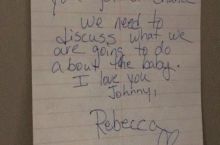 We need to
discuss what we
are going to do
about the baby.
I love you
Johnny,
Rebecca